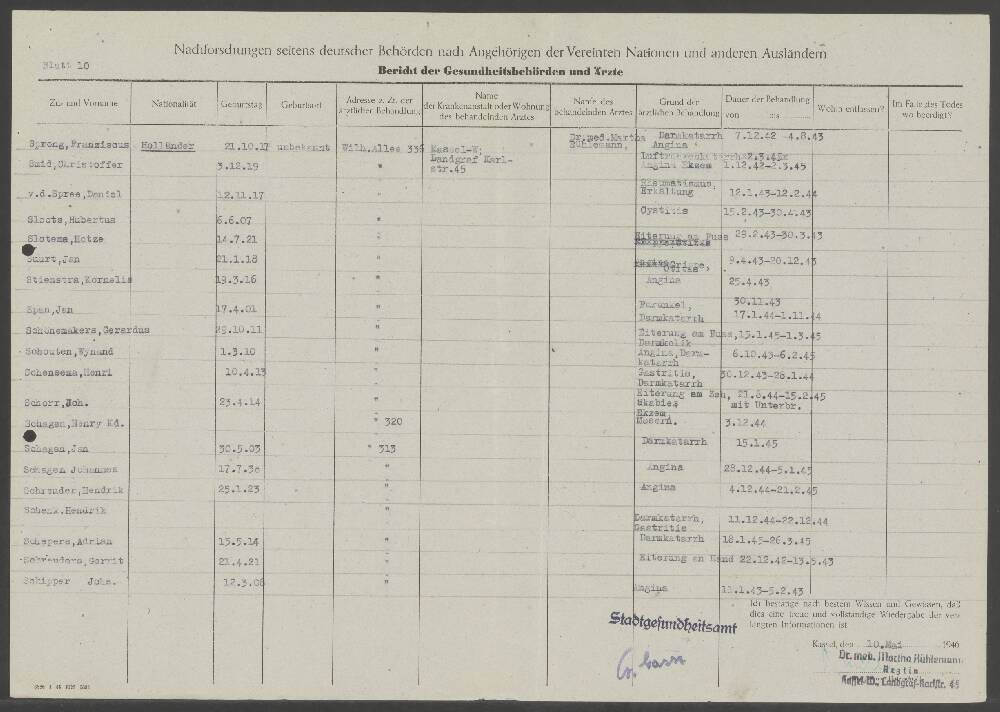 Nachforschungen seitens deutscher Behörden nach Angehörigen der Vereinten Nationen und anderen Ausländern
Blatt 10
Bericht der Gesundheitsbehörden und Ärzte
Zu- und Vorname Nationalität Geburtstag Geburtsort Adresse z. Zt. der ärztlicher Behandlung Name der Krankenanstalt oder Wohnung des behandelnden Arztes Name des behandelnden Arztes Grund der ärztlichen Behandlung Dauer der Behandlung von bis Wohin entlassen? Im Falle des Todes wo beerdigt?
Sprong, Franziscus Holländer 21.10.17 unbekannt Wilh.Allee 336 Kassel-W; Landgraf Karl-str.45 Dr.med.Martha Rühlemann, Darmkatarrh Angina 7.12.42 -4.8.43
Smid, Christoffer 3.12.19 " Angina Ekzem 1.12.42-2.3.45
v.d.Spree, Daniel 12.11.17 " Rheumatismus, Erkältung 12.1.43-12.2.44
Sloots, Hubertus 6.6.07 " Cystitis 15.2.43-30.4.43
Slotema, Hotze 14.7.21 " Eiterung am Fuss 29.2.43-30.3.43
Suurt, Jan 21.1.18 " Grippe, Otitas 9.4.43-20.12.43
Stienstra, Kornelis 19.3.16 " Angina 25.4.43
Span, Jan 17.4.01 " Furunkel, 30.11.43
Darmkatarrh 17.1.44-1.11.44
Schönemakers, Gerardus 29.10.11 " Eiterung am Fuss, 15.1.45-1.3.45
Darmkolik
Schouten, Wynand 1.3.10 " Angina, Darm-katarrh 6.10.43-6.2.45
Schensema, Henri 10.4.13 " Gastritis, Darmkatarrh 30.12.43-26.1.44
Schorr, Joh. 23.4.14 " Eiterung am Zeh, Skabies Ekzem 21.8.44-15.2.45 mit Unterbr.
Schagen, Henry Ed. " 320 Masern. 3.12.44
Schagen, Jan 30.5.03 " 313 Darmkatarrh 15.1.45
Schagen Johannes 17.7.30 " Angina 28.12.44-5.1.45
Schreuder, Hendrik 25.1.23 " Angina 4.12.44-21.2.45
Schenk, Hendrik " Darmkatarrh, Gastritis 11.12.44-22.12.44
Schepers, Adrian 15.5.14 " Darmkatarrh 18.1.45-26.3.45
Schreuders, Gerrit 21.4.21 " Eiterung an Hand 22.12.42-13.5.43
Schipper Johs. 12.3.08 " Angina 11.1.43-5.2.43
Ich bestätige nach bestem Wissen und Gewissen, daß
dies eine treue und vollständige Wiedergabe der ver-
langten Informationen ist
Stadtgesundheitsamt
Kassel, den 10.Mai 1946
Dr. med. Martha Rühlemann
Ärztin
Kassel-W., Landgraf-Karlstr. 45